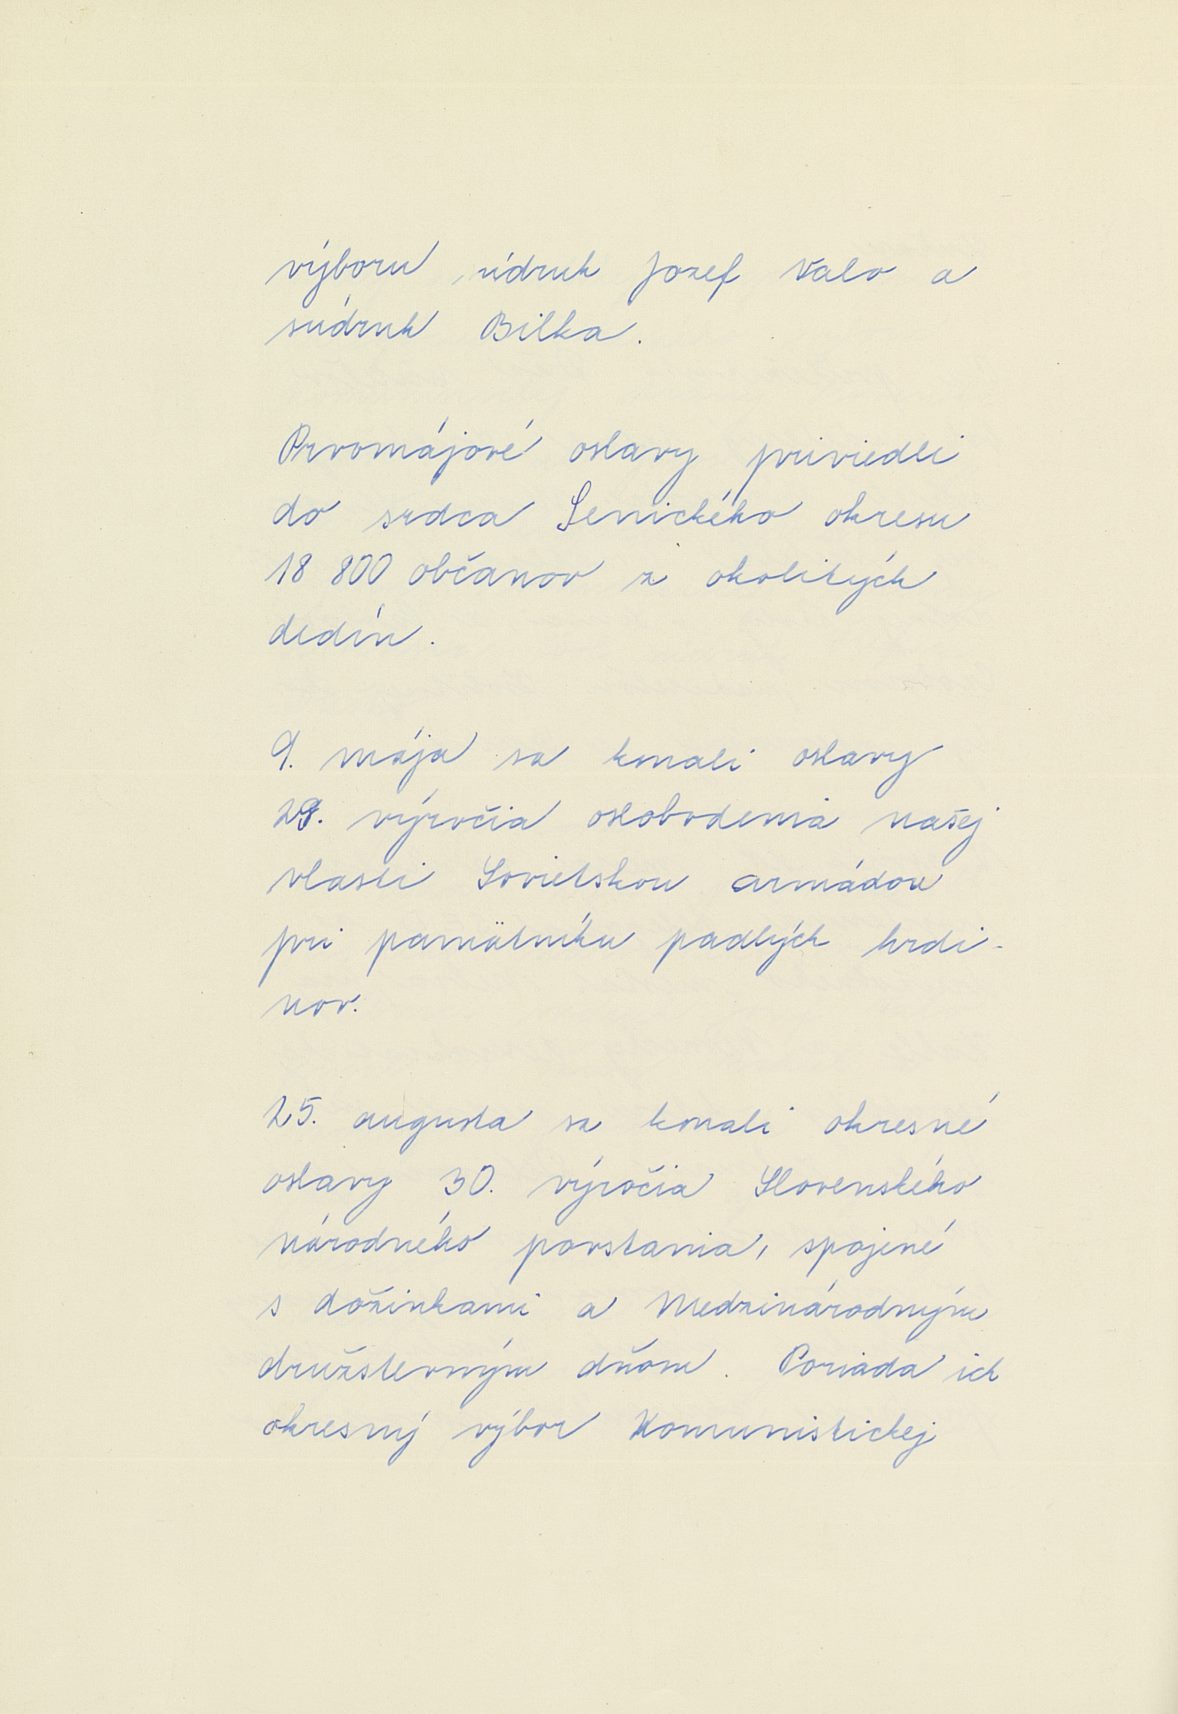 výboru súdruh Jozef Valo a
súdruh Bilka.
Prvomájové oslavy priviedli
do srdca Senického okresu
18 800 občanov z okolitých
dedín.
9. mája sa konali oslavy
29. výročia oslobodenia našej
vlasti Sovietskou armádou
pri pamätníku padlých hrdi-
nov.
25. augusta sa konali okresné
oslavy 30. výročia Slovenského
národného povstania, spojené
s dožinkami a Medzinárodným
družstevným dňom. Poriada ich
okresný výbor Komunistickej